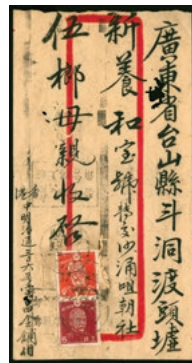 廣東省台山縣斗洞渡頭墟
新養和宝號轉交沙涌咀朝社
伍柳母親收啓
香港
中明